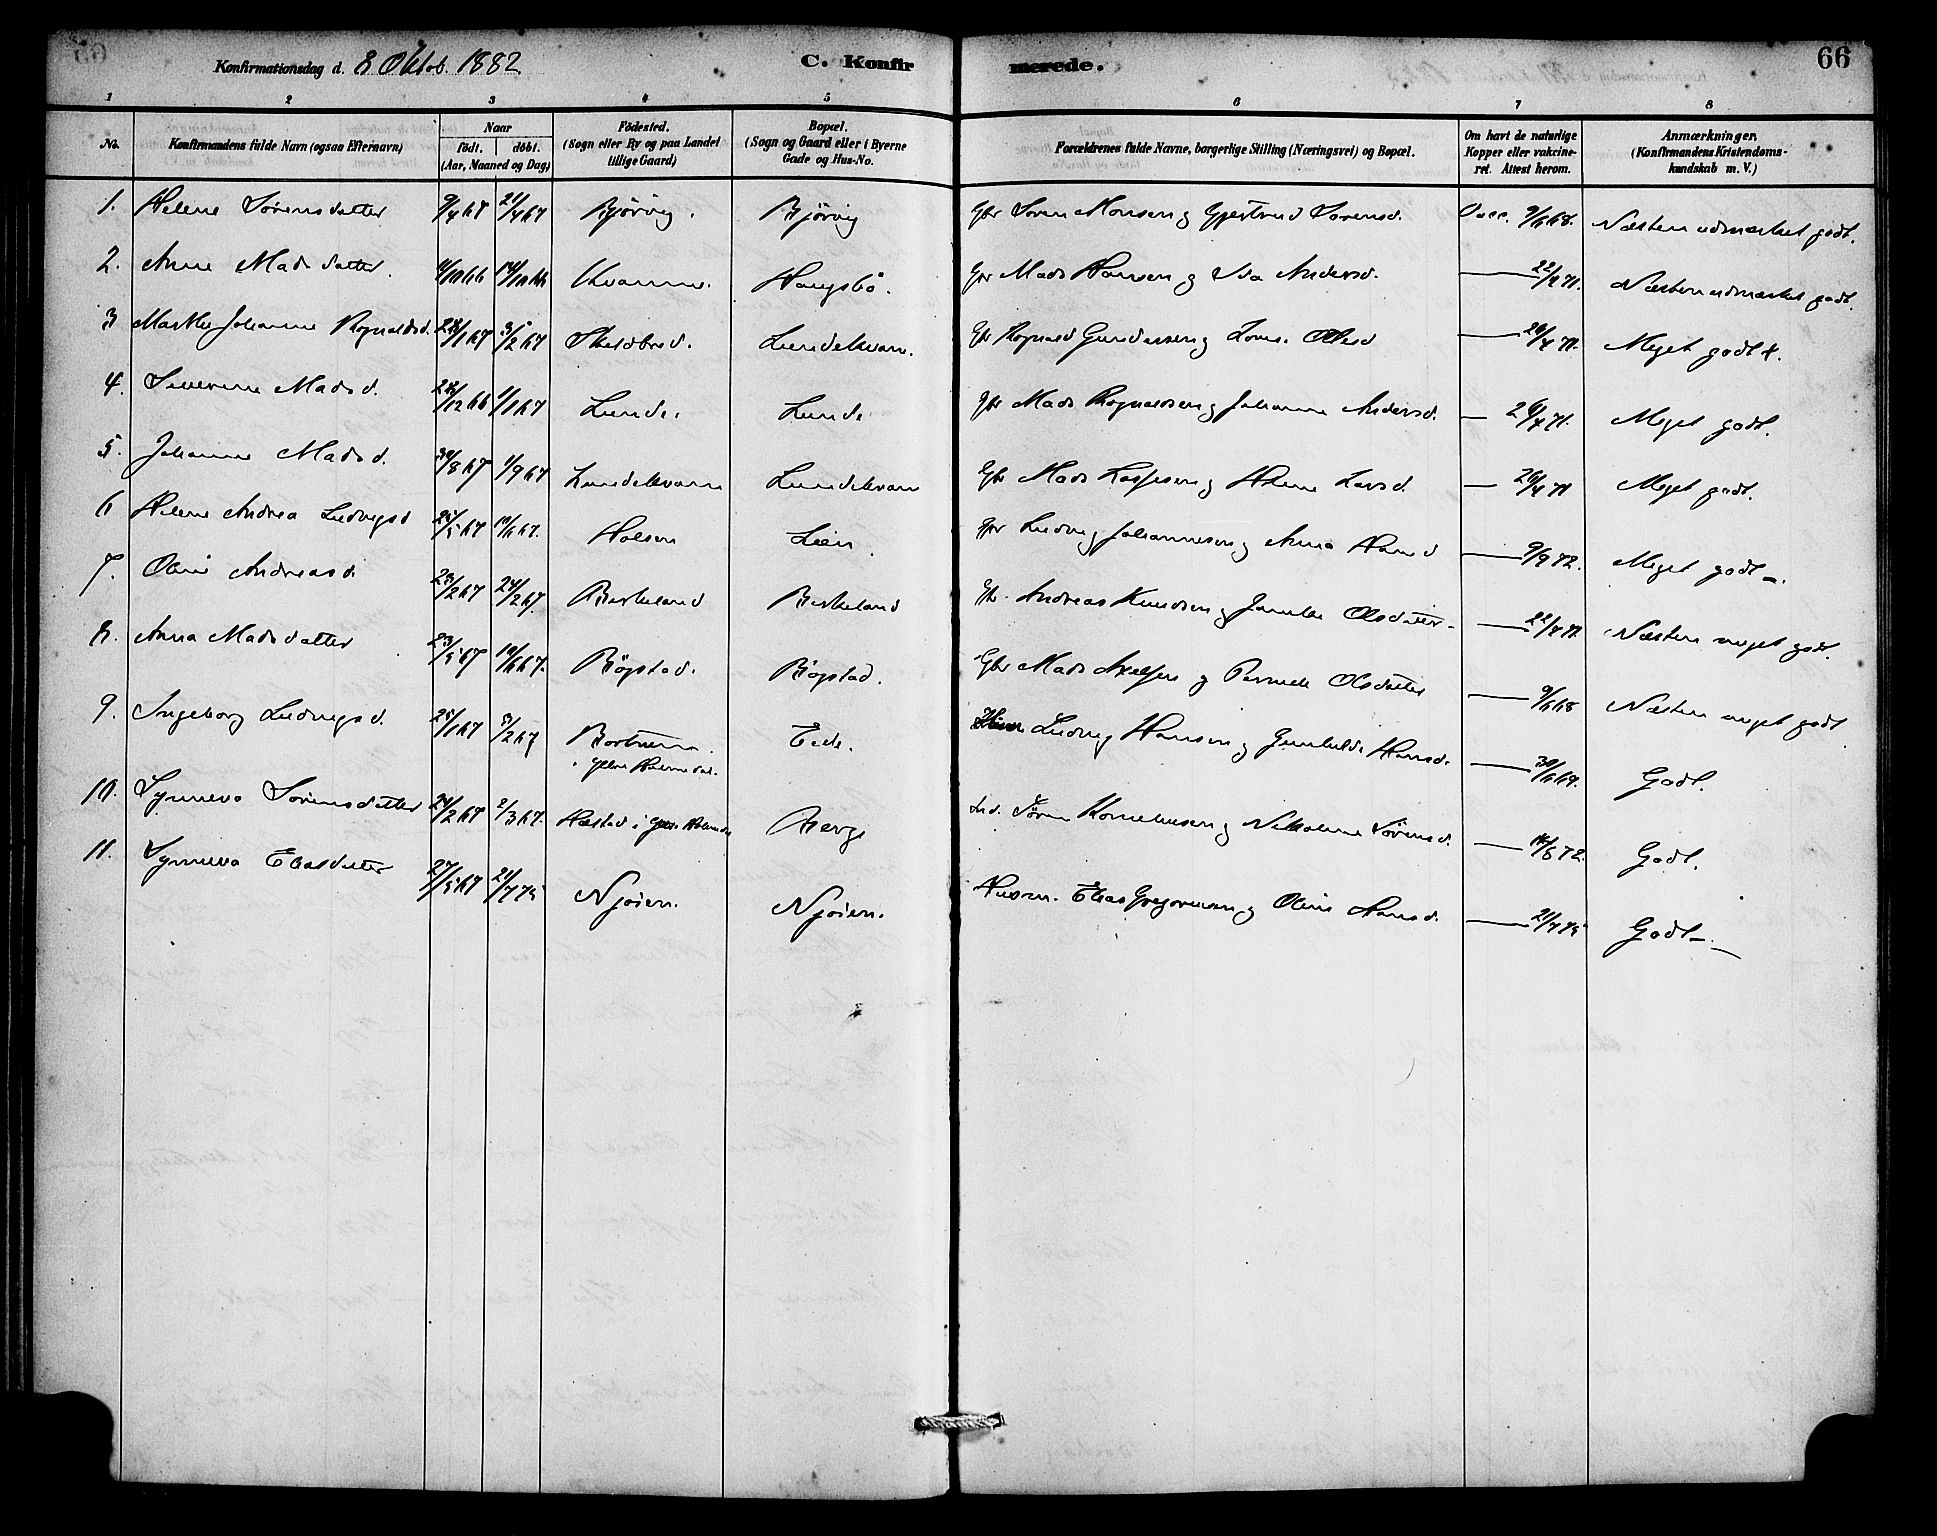 Konfirmationsdag d. 8 Oktob. 1882 C. Konfirmerede. 66
1 2 3 4 5 6 7 8
No. Konfirmandens fulde Navn (ogsaa Efternavn) Naar födt. döbt. (Aar, Maaned og Dag) Födested. (Sogn eller By og paa Landet tillige Gaard) Bopæl. (Sogn og Gaard eller i Byerne Gade og Hus-No. Forældrenes fulde Navne, borgerlige Stilling (Næringsvei) og Bopæl. Om havt de naturlige Kopper eller vakcineret. Attest herom. Anmærkninger. (Konfirmandens Kristendomskundskab m. V.)
1. Helene Sørensdatter 9/4 67 21/4 67 Bjørvig. Bjørvig Gbr Søren Monsen og Gjertrud Sørensd. Vacc. 9/6 68. Næsten udmærket godt.
2. Anne Madsdatter. 14/10 66 Kvamme. Haugsbø. Gbr Mads Hansen og Andersd. — Næsten udmærket godt.
3 Marthe Johanne Rognaldsd. 3/2 67 Lundekvam. Gbr Rognald Gundersen og Olesd — 26/4 71. Meget godt
4. Severine Madsd. 28/12 66 1/1 67 Lunde. Lunde Gbr Mads Rognaldsen og Johanne Andersd. — 26/4 71. Meget godt.
5. Johanne Madsd. 30/8 67 1/9 67 Lundekvam Lundekvam Gbr Mads og Helene Larsd. — 26/4 71 Meget godt.
6 Helene Andrea Ludvigsd 25/5 67 10/6 67. Holsen Lien. Gbr Ludvig Johannesen og Anna Hansd — 9/9 72. Meget godt -.
7. Oline Andreasd. 23/2 67 24/2 67. Birkeland Birkeland Gbr. Andreas Knudsen og Olsdatter — Næsten meget godt.
8. Anna Madsdatter 23/5 67 10/6 67. Bögstad. Bögstad. Gbr Mads Axelsen og Pernele Olsdatter — 9/6 68 Næsten meget godt
9. Ingeborg Ludvigsd. 25/1 67 3/2 67 Eide. Ludvig Hansen og Gunhilde Hansd. — 30/6 69. Godt.
10. Synneva Sørensdatter 24/2 67 2/3 67. Hæstad i Berge Ind. Søren Korneliusen og Nikoline Sørensd. — Godt.
11. Synneva Eliasdatter 27/5 67 21/7 75 Njöien. Njöien. Husm. Elias Gregoriusen og Oline Hansd. — 21/7 75 Godt -.